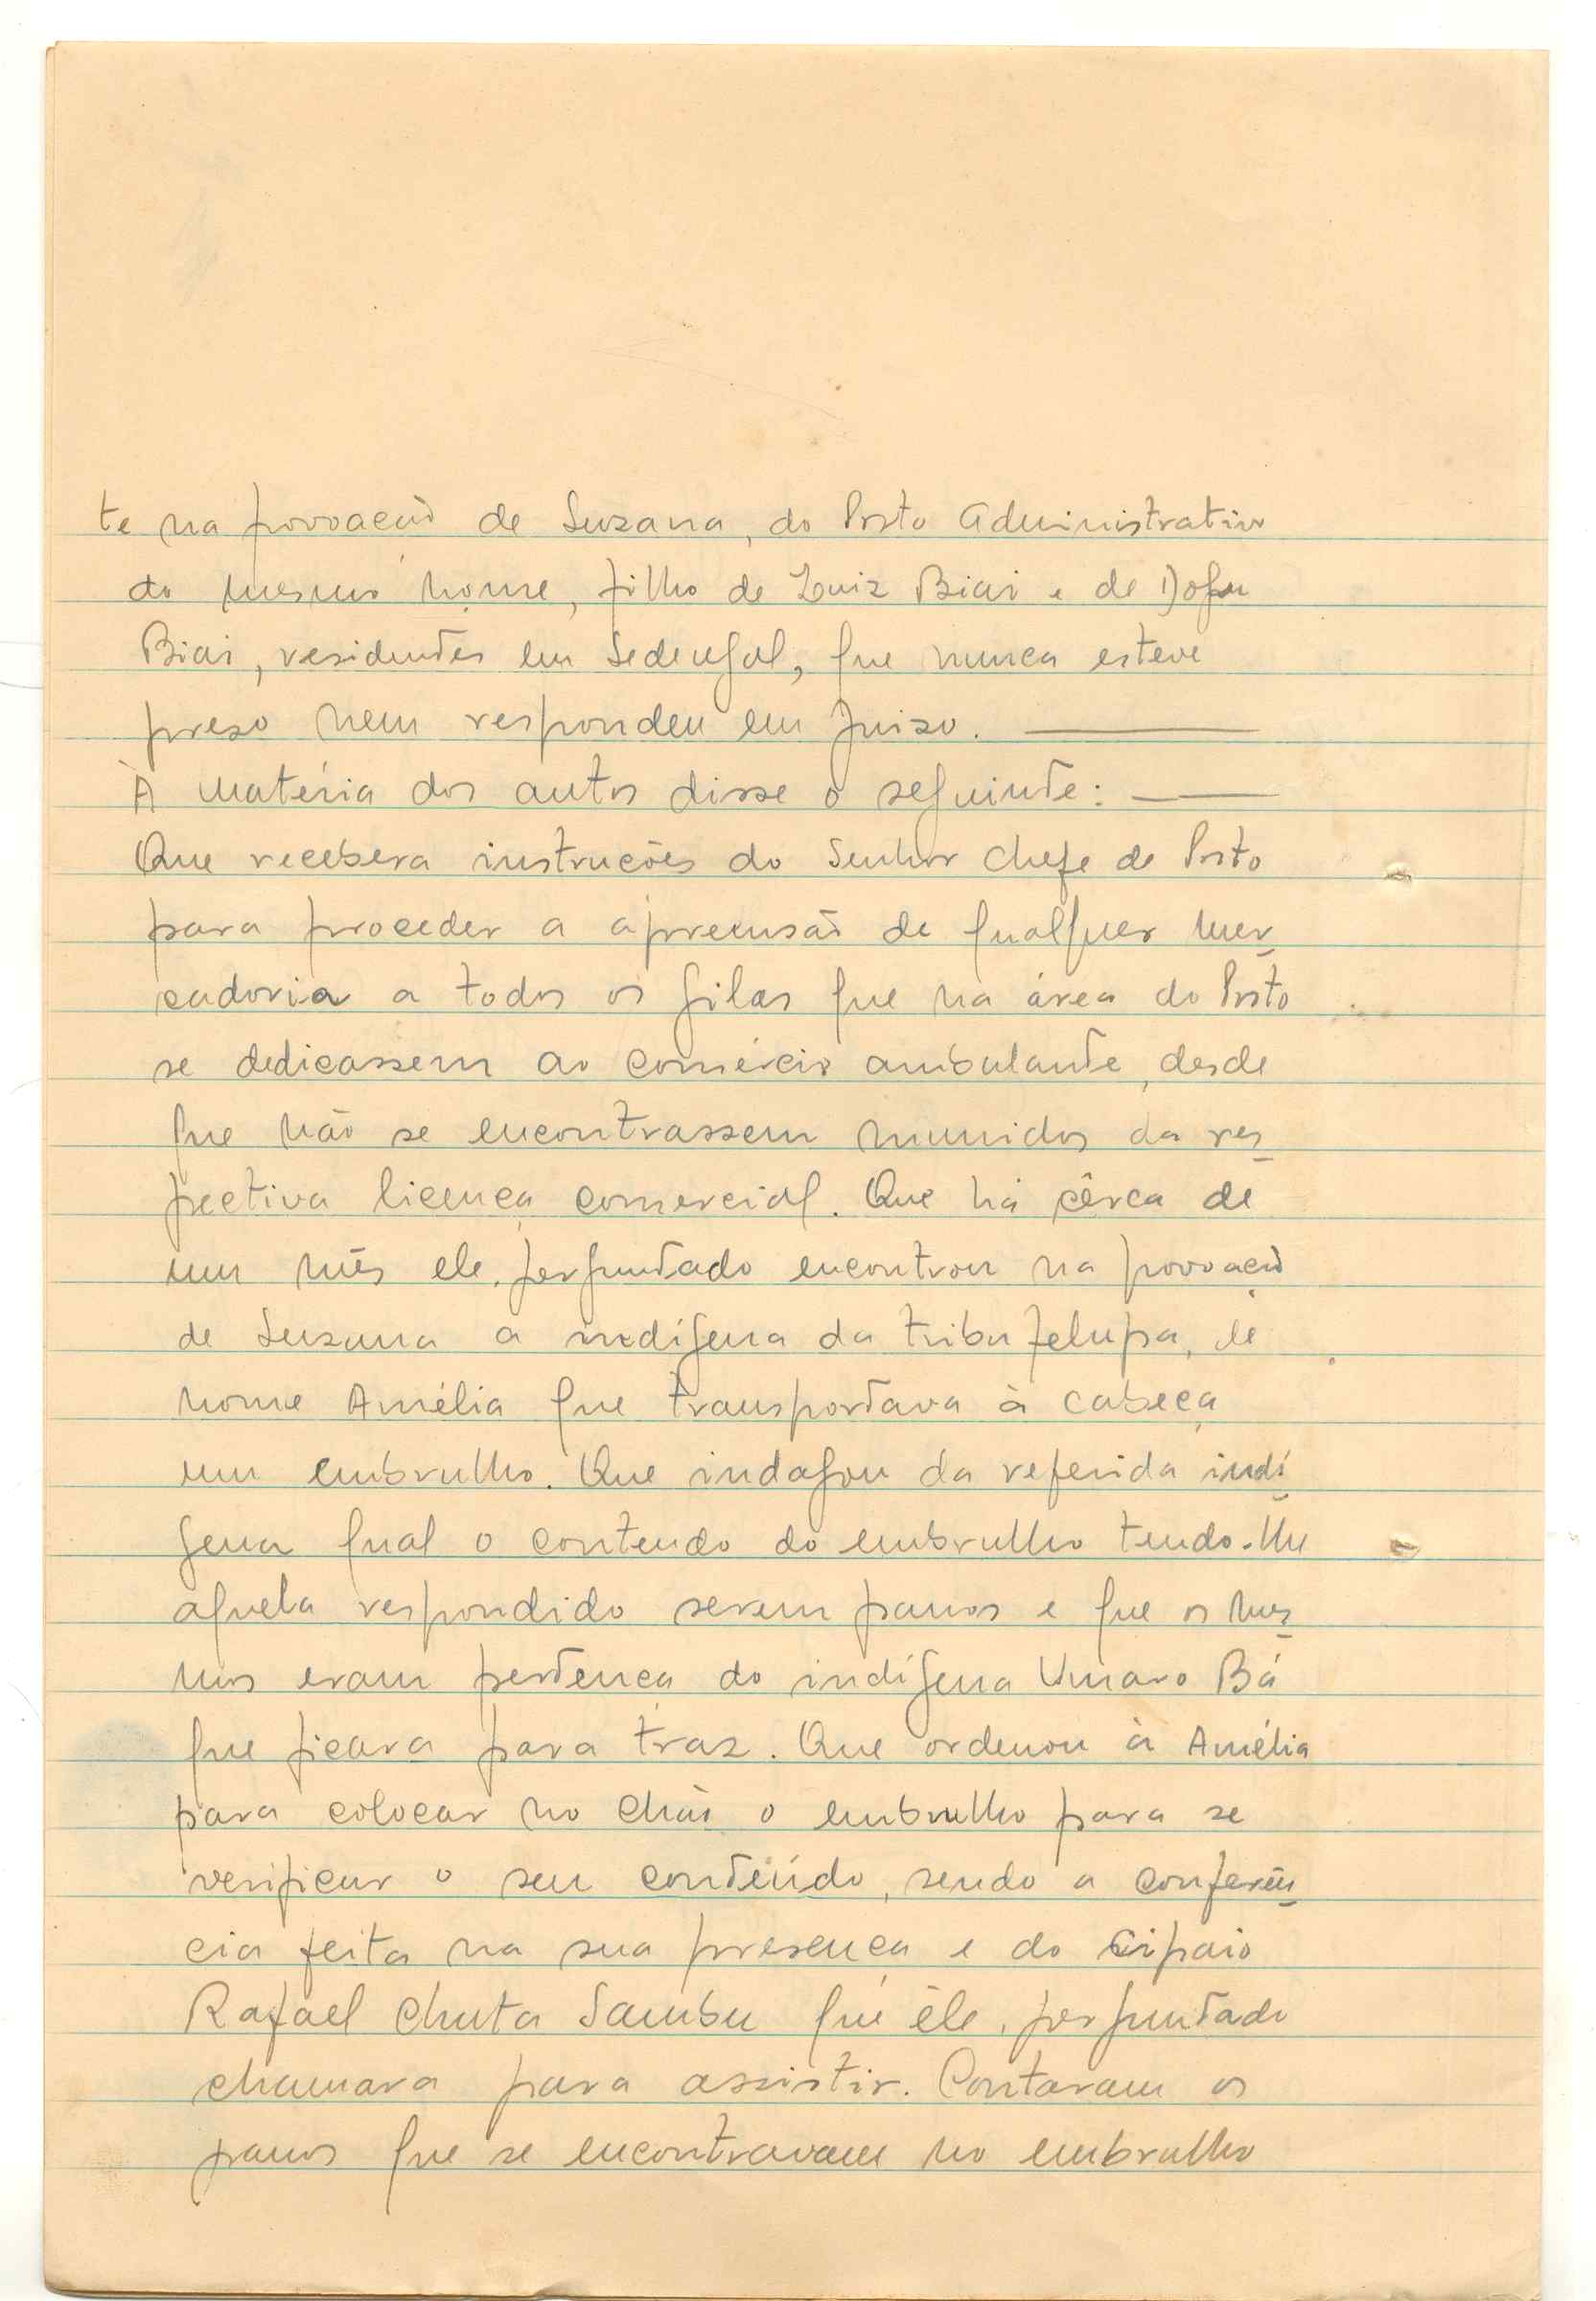 te na povoação de Suzana, do Posto Administrativo
do mesmo nome, filho de Luiz Biai e de
Biai, residentes em Sedengal, que nunca esteve
preso nem respondeu em Juizo. ———
À matéria dos autos disse o seguinte: ———
Que recebera instruções do Senhor Chefe de Posto
para proceder a apreensão de qualquer mer-
cadoria a todos os gilas que na área do Posto
se dedicassem ao comércio ambulante, desde
que não se encontrassem munidos da res-
pectiva licença comercial. Que há cêrca de
um mês ele, perguntado encontrou na povoação
de Suzana a indígena da tribu felupa, de
nome Amélia que transportava à cabeça
um embrulho. Que indagou da referida indí-
gena qual o conteudo do embrulho tendo-lhe
aquela respondido serem panos e que os mes-
mos eram pertença do indígena Umaro Bá
que ficara para traz. Que ordenou à Amélia
para colocar no chão o embrulho para se
verificar o seu conteúdo, sendo a conferên-
cia feita na sua presença e do cipaio
Rafael Chuta Sambu que êle, perguntado
chamara para assistir. Contaram os
panos que se encontravam no embrulho